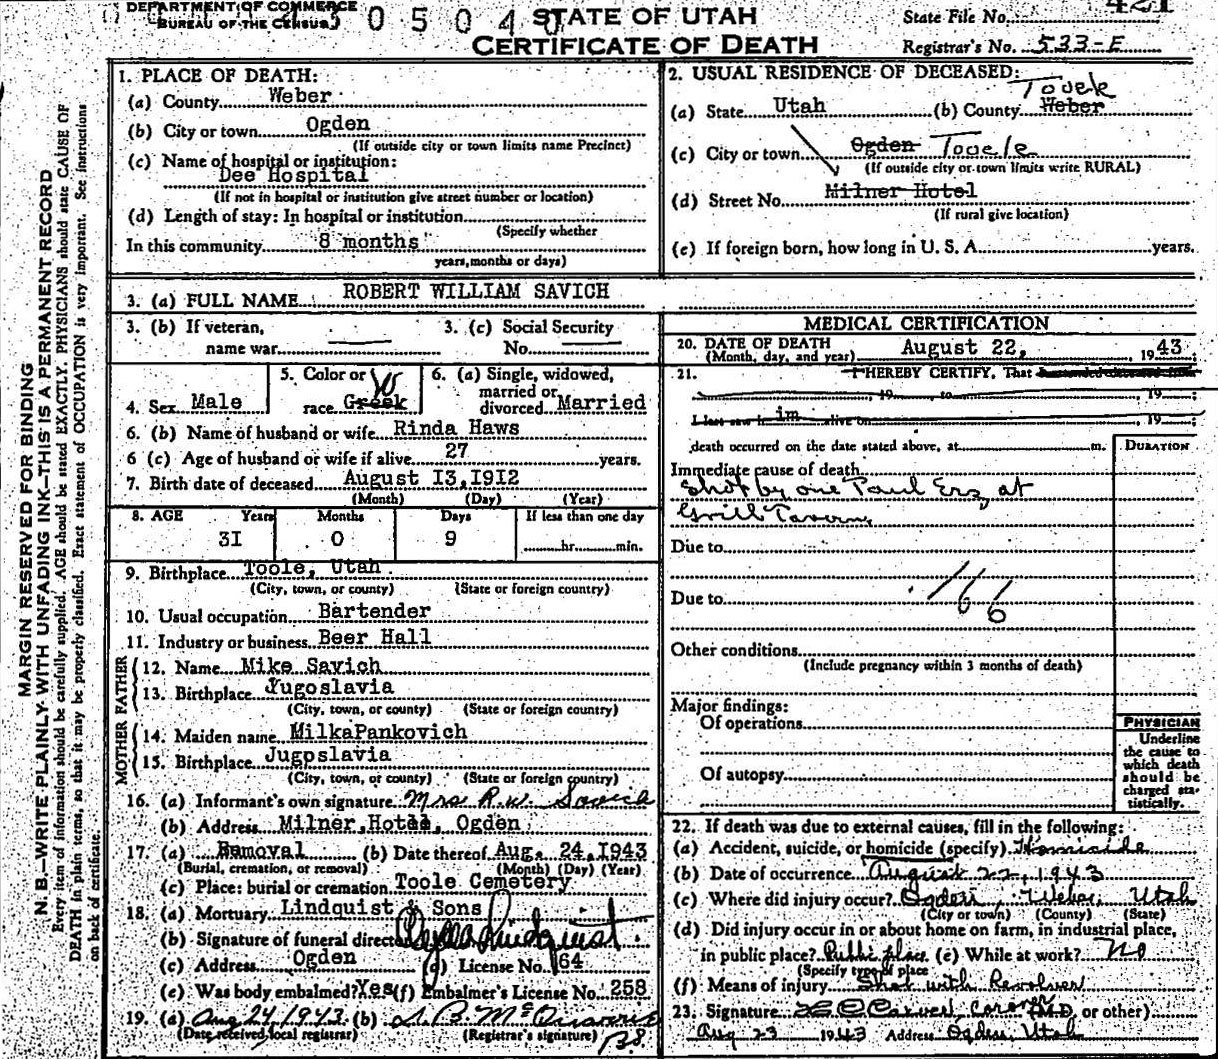 DEPARTMENT OF COMMERCE
BUREAU OF THE CENSUS
0 5 0 4 0
STATE OF UTAH
CERTIFICATE OF DEATH
State File No. 421
Registrar's No. 533-E
MARGIN RESERVED FOR BINDING
N. B.—WRITE PLAINLY WITH UNFADING INK—THIS IS A PERMANENT RECORD
Every item of information should be carefully supplied. AGE should be stated EXACTLY. PHYSICIANS should state CAUSE OF
DEATH in plain terms, so that it may be properly classified. Exact statement of OCCUPATION is very important. See instructions
on back of certificate.
1. PLACE OF DEATH:
(a) County Weber
(b) City or town Ogden
(If outside city or town limits name Precinct)
(c) Name of hospital or institution:
Dee Hospital
(If not in hospital or institution give street number or location)
(d) Length of stay: In hospital or institution
(Specify whether
In this community 8 months
years, months or days)
2. USUAL RESIDENCE OF DECEASED:
Tooele
(a) State Utah (b) County Weber
(c) City or town Ogden Tooele
(If outside city or town limits write RURAL)
(d) Street No. Milner Hotel
(If rural give location)
(e) If foreign born, how long in U. S. A. years.
3. (a) FULL NAME ROBERT WILLIAM SAVICH
3. (b) If veteran, name war
3. (c) Social Security No.
4. Sex Male
5. Color or race Greek W
6. (a) Single, widowed, married or divorced Married
6. (b) Name of husband or wife Rinda Haws
6 (c) Age of husband or wife if alive 27 years.
7. Birth date of deceased August 13, 1912
(Month) (Day) (Year)
8. AGE Years Months Days If less than one day
31 0 9 hr. min.
9. Birthplace Toole, Utah
(City, town, or county) (State or foreign country)
10. Usual occupation Bartender
11. Industry or business Beer Hall
FATHER
12. Name Mike Savich
13. Birthplace Jugoslavia
(City, town, or county) (State or foreign country)
MOTHER
14. Maiden name MilkaPankovich
15. Birthplace Jugoslavia
(City, town, or county) (State or foreign country)
16. (a) Informant's own signature Mrs R.W. Savich
(b) Address Milner Hotel, Ogden
17. (a) Removal (b) Date thereof Aug. 24, 1943
(Burial, cremation, or removal) (Month) (Day) (Year)
(c) Place: burial or cremation Toole Cemetery
18. (a) Mortuary Lindquist & Sons
(b) Signature of funeral director Lindquist
(c) Address Ogden (d) License No. 64
(e) Was body embalmed? Yes (f) Embalmer's License No. 258
19. (a) Aug 24, 1943 (b)
(Date received local registrar) (Registrar's signature)
MEDICAL CERTIFICATION
20. DATE OF DEATH
(Month, day, and year) August 22, 1943
21. I HEREBY CERTIFY, That
19 , to 19
I last saw h im alive on 19
death occurred on the date stated above, at m.
DURATION
Immediate cause of death
Shot by one Paul Erz, at
Grill Tavern
Due to
Due to
166
Other conditions
(Include pregnancy within 3 months of death)
Major findings:
Of operations
Of autopsy
PHYSICIAN
Underline
the cause to
which death
should be
charged sta-
tistically.
22. If death was due to external causes, fill in the following:
(a) Accident, suicide, or homicide (specify) Homicide
(b) Date of occurrence August 22, 1943
(c) Where did injury occur? Ogden, Weber, Utah
(City or town) (County) (State)
(d) Did injury occur in or about home on farm, in industrial place,
in public place? Public place (e) While at work? No
(Specify type of place)
(f) Means of injury Shot with Revolver
23. Signature Carver, Coroner (M.D. or other)
Aug 23 1943 Address Ogden, Utah